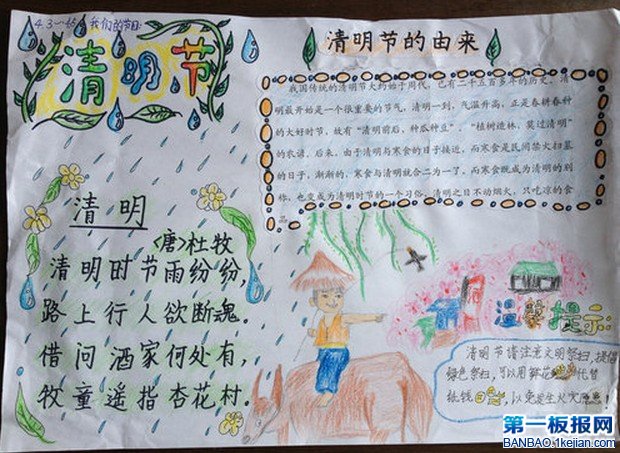 我们的节日:
清明节
清明节的由来
我国传统的清明节大约始于周代，已有二千五百多年的历史。清
明最开始是一个很重要的节气，清明一到，气温升高，正是春耕春种
的大好时节，故有“清明前后，种瓜种豆”。“植树造林，莫过清明”
的农谚。后来，由于清明与寒食的日子接近，而寒食是民间禁火扫墓
的日子，渐渐的，寒食与清明就合二为一了，而寒食既成为清明的别
称，也变成为清明时节的一个习俗，清明之日不动烟火，只吃凉的食
品
清明
<唐>杜牧
清明时节雨纷纷,
路上行人欲断魂.
借问酒家何处有,
牧童遥指杏花村.
温馨提示:
清明节请注意文明祭扫,提倡
绿色祭扫,可以用鲜花代替
纸钱,以免发生火灾
第一板报网
BANBAO.1kejian.com